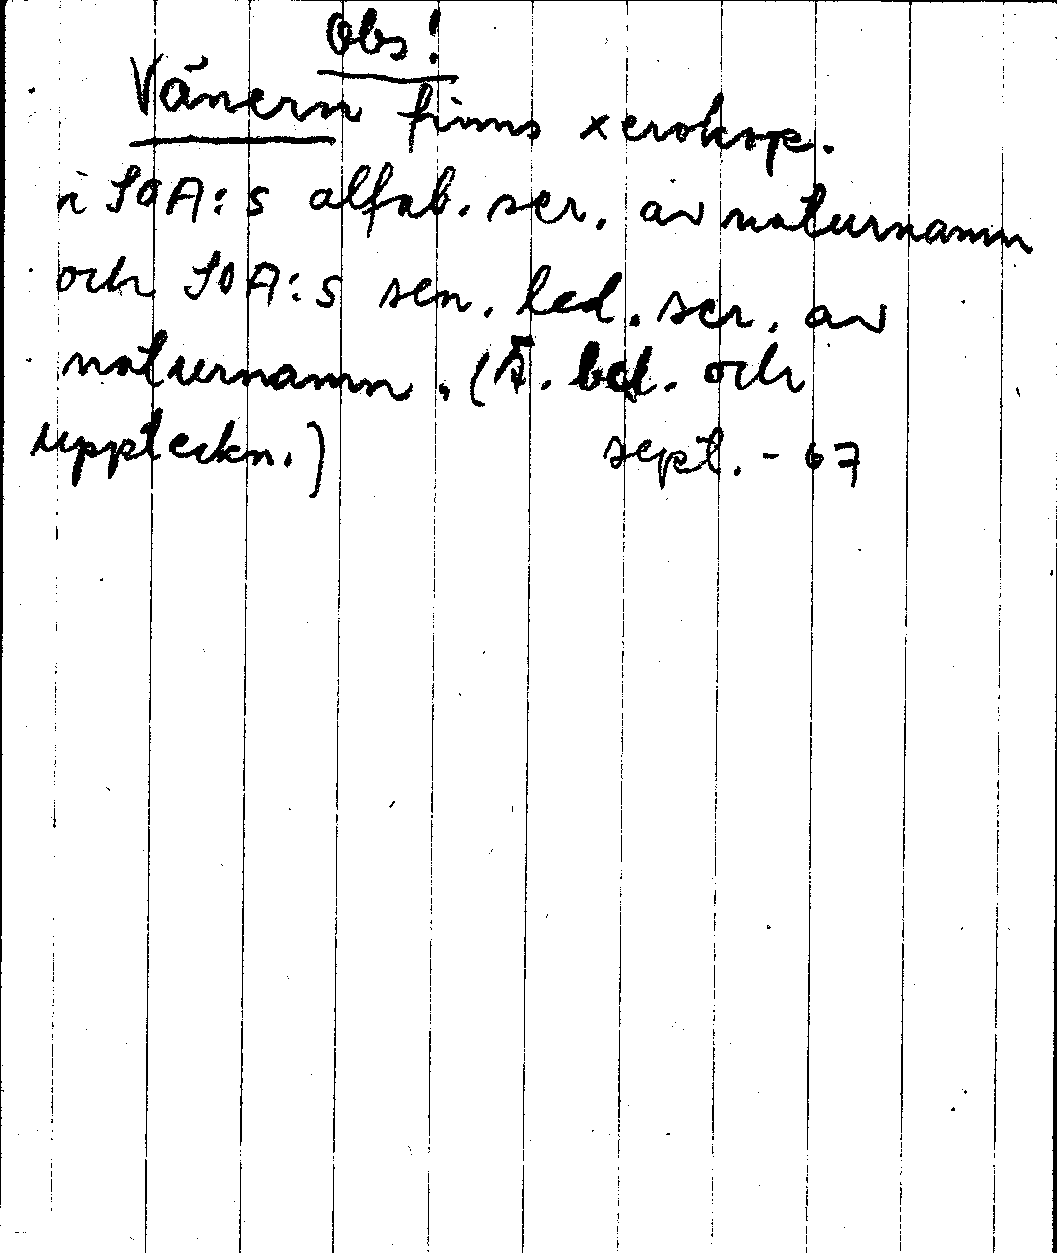 Obs!
Vänern finns xerokop.
i SOA:s alfab. ser. av naturnamn
och SOA:s sen. led. ser. av
naturnamn. (Ä. bel. och
uppteckn.) sept. - 67